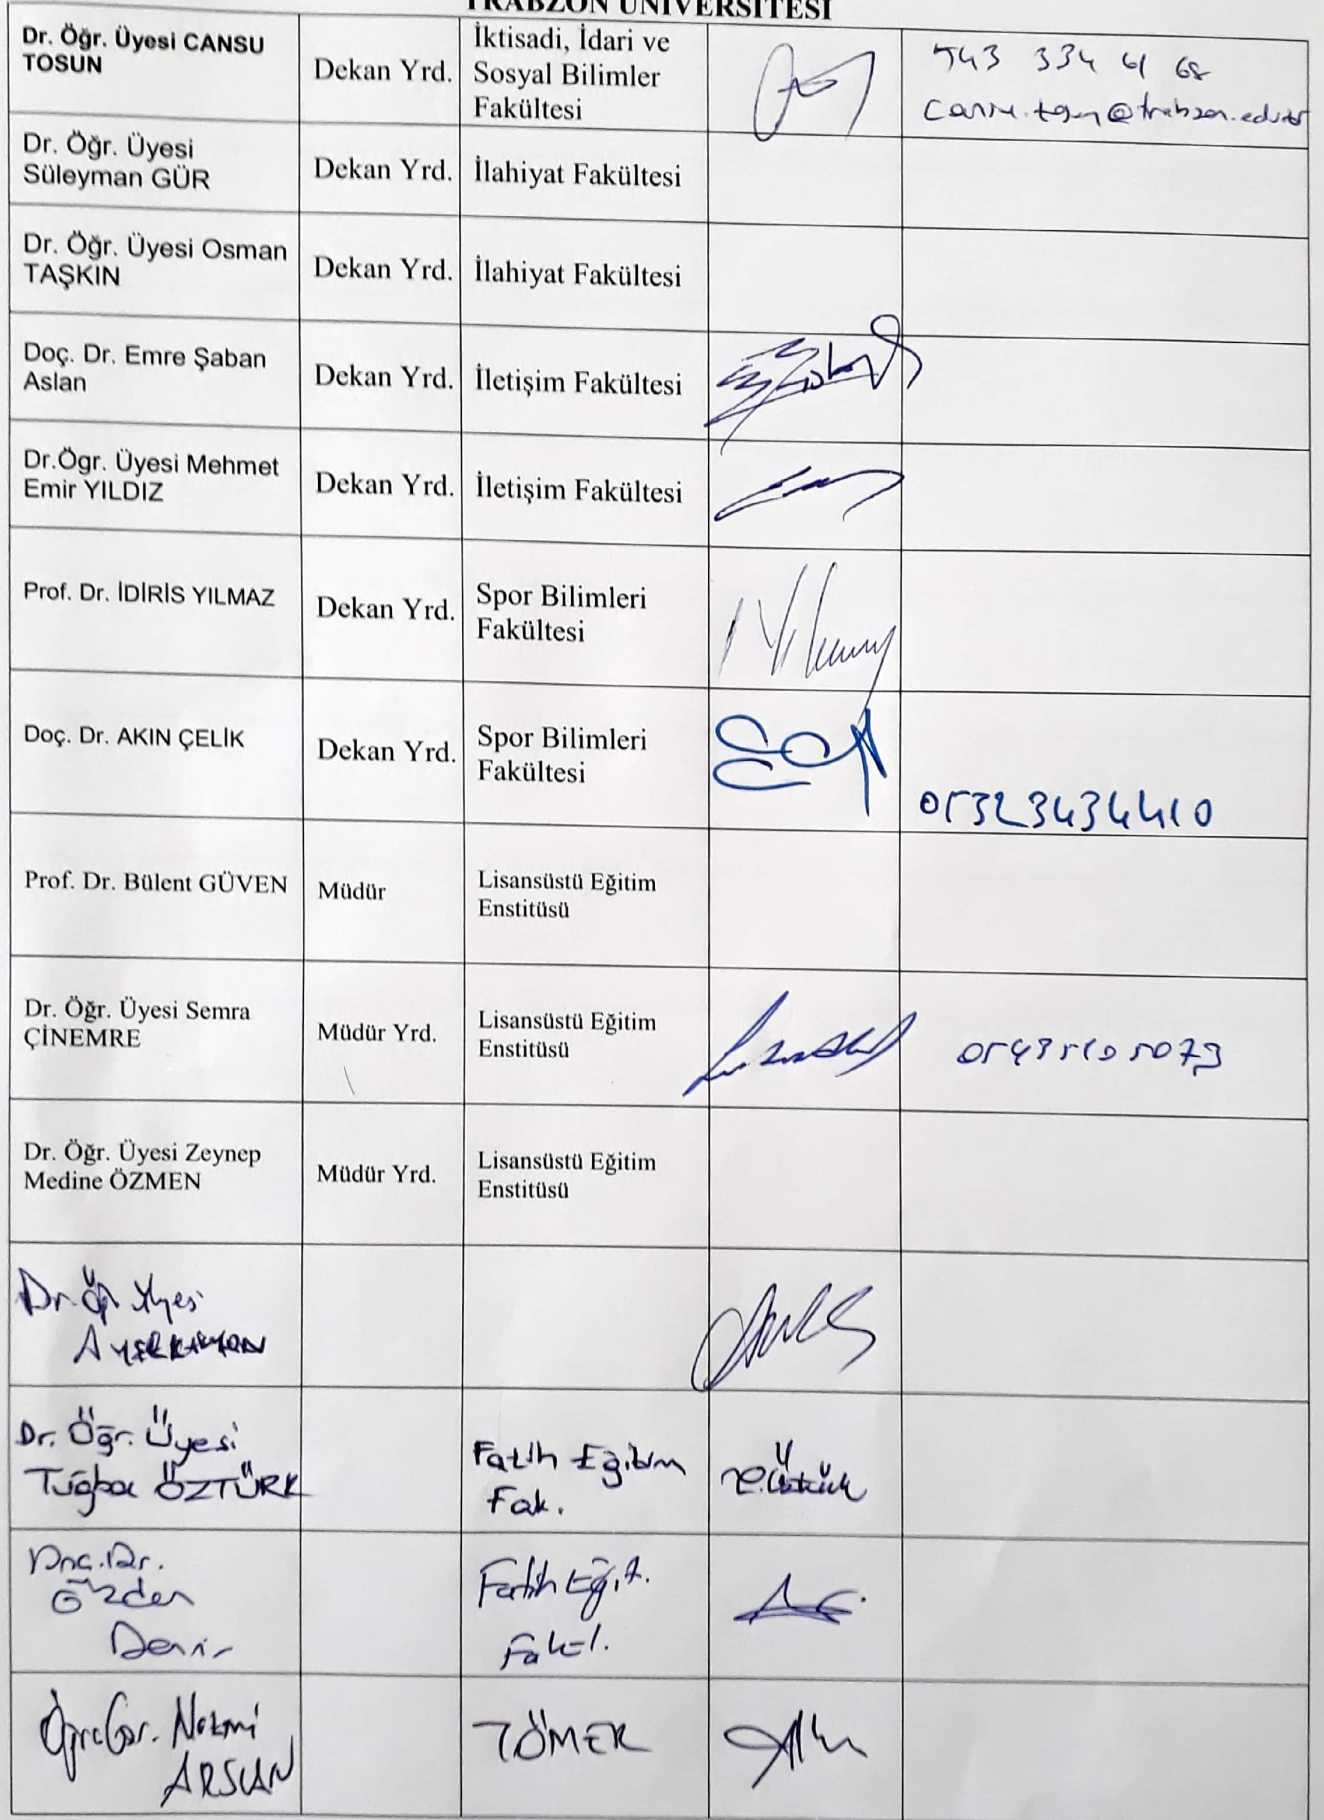 TRABZON ÜNİVERSİTESİ
Dr. Öğr. Üyesi CANSU
TOSUN
Dekan Yrd.
İktisadi, İdari ve
Sosyal Bilimler
Fakültesi
543 334 61 68
Dr. Öğr. Üyesi
Süleyman GÜR
Dekan Yrd.
İlahiyat Fakültesi
Dr. Öğr. Üyesi Osman
TAŞKIN
Dekan Yrd.
İlahiyat Fakültesi
Doç. Dr. Emre Şaban
Aslan
Dekan Yrd.
İletişim Fakültesi
Dr.Ögr. Üyesi Mehmet
Emir YILDIZ
Dekan Yrd.
İletişim Fakültesi
Prof. Dr. İDİRİS YILMAZ
Dekan Yrd.
Spor Bilimleri
Fakültesi
Doç. Dr. AKIN ÇELİK
Dekan Yrd.
Spor Bilimleri
Fakültesi
05323434410
Prof. Dr. Bülent GÜVEN
Müdür
Lisansüstü Eğitim
Enstitüsü
Dr. Öğr. Üyesi Semra
ÇİNEMRE
Müdür Yrd.
Lisansüstü Eğitim
Enstitüsü
05435105073
Dr. Öğr. Üyesi Zeynep
Medine ÖZMEN
Müdür Yrd.
Lisansüstü Eğitim
Enstitüsü
Dr. Öğr. Üyesi
Dr. Öğr. Üyesi
Tuğba ÖZTÜRK
Fatih Eğitim
Fak.
Doç. Dr.
Özden
Demir
Fatih Eğit.
Fakül.
ARSLAN
TÖMER